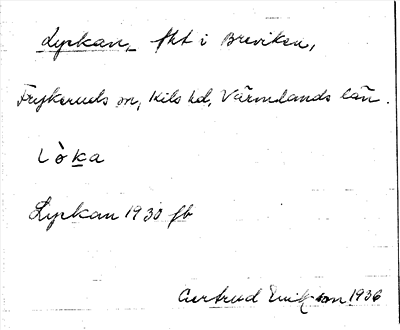 Lyckan, fht i Breviken,
Frykeruds sn, Kils hd, Värmlands län.
Lòka
Lyckan 1930 fb
Gertrud Eriksson 1936